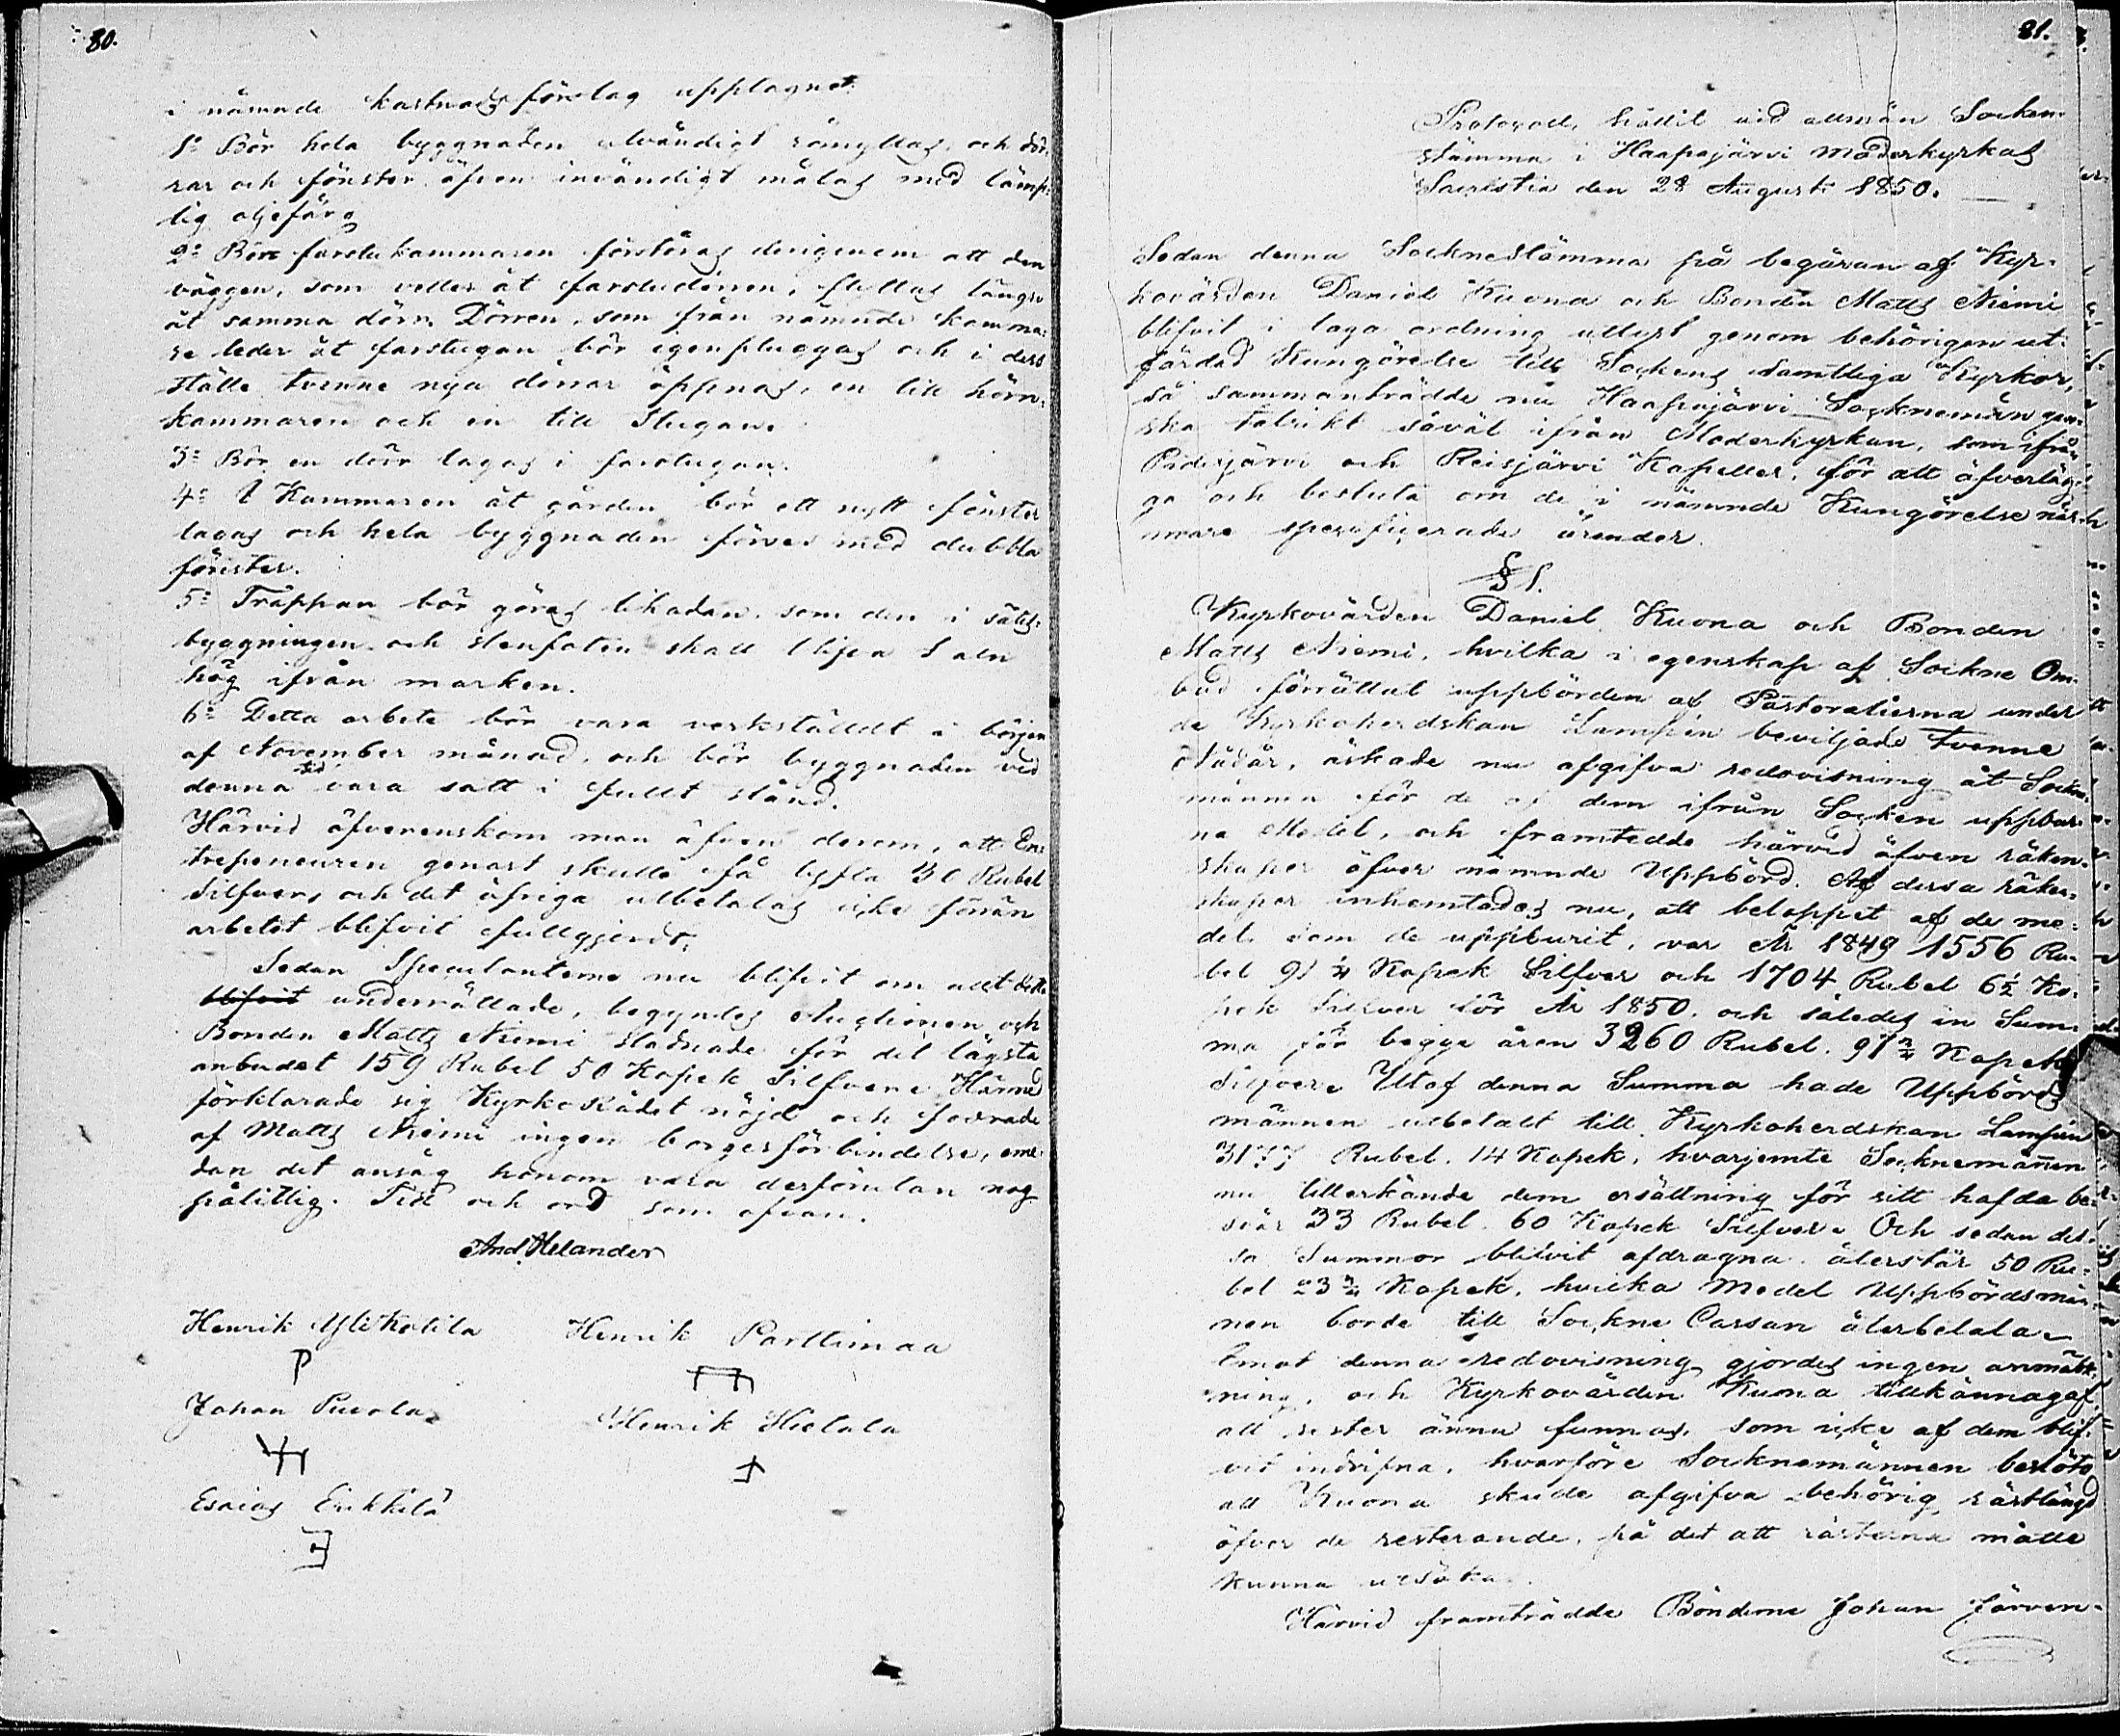 80.
i nämnde kostnadsförslag upptagnet:
1o Bör hela byggnaden utvändigt rämyllas, och dör-
rar och fönster äfven invändigt målas med lämp-
lig oljefärg
2o Bör farstukammaren förstoras derigenom att den
väggen, som vetter åt farstudörren, flyttas längre
åt samma dörr. Dörren, som från nämnde kamma-
re leder åt farstugan bör igenpluggas och i dess
ställe tvenne nya dörrar öppnas, en till hörn-
kammaren och en till stugan.
3o Bör en dörr lagas i farstugan.
4o I Kammaren åt gården bör ett nytt fönster
lagas och hela byggnaden förses med dubbla
fönster.
5o Trappan bör göras likadan, som den i sätes-
byggningen och stenfoten skall blifva 1 aln
hög ifrån marken.
6o Detta arbete bör vara verkställdt i början
af November månad, och bör byggnaden vid
denna tid vara satt i fullt stånd.
Härvid äfverenskom man äfven derom, att En-
trepeneuren genast skulle få lyfta 30 Rubel
Silfver, och det öfriga utbetalas icke förrän
arbetet blifvit fullgjordt.
Sedan Speculanterne nu blifvit om allt detta
blifvit underrättade, begyntes Auctionen och
Bonden Matts Niemi stadnade för det lägsta
anbudet 159 Rubel 50 Kopek Silfver. Härmed
förklarade sig Kyrko Rådet nöjd och fodrade
af Matts Niemi ingen borgesförbindelse, eme-
dan det ansåg honom vara derförutan nog
pålitlig. Tid och ord som ofvan.
And. Helander
Henrik Ylikotila Henrik Parttimaa
Johan Purola Henrik Hietala
Esaias Erikkilä
81.
Protocoll, hållit vid allmän Socken-
stämma i Haapajärvi Moderkyrkas
Sacristia den 28 Augusti 1850.
Sedan denna Socknestämma på begäran af Kyr-
kovärden Daniel Kuona och Bonden Matts Niemi
blifvit i laga ordning utlyst genom behörigen ut-
färdad Kungörelse till Sockens samtliga Kyrkor,
så sammanträdde nu Haapajärvi Socknemän gan-
ska talrikt såväl ifrån Moderkyrkan, som ifrån
Pidisjärvi och Reisjärvi Kapeller, för att öfverläg-
ga och besluta om de i nämnde Kungörelse när-
mare specificerade ärender.
§ 1.
Kyrkovärden Daniel Kuona och Bonden
Matts Niemi, hvilka i egenskap af Sockne Om-
bud förrättat uppbörden af Pastoralierna under
de Kyrkoherdskan Lampén beviljade tvenne
Nådår, äskade nu afgifva redovisning åt Sockne-
männen för de af dem ifrån Socken uppbur-
na Medel, och framtedde härvid äfven räken-
skaper öfver nämnde Uppbörd. Af dessa räken-
skaper inhemtades nu, att beloppet af de me-
del som de uppburit, var År 1849 1556 Ru-
bel 91 1/4 Kopek Silfver och 1704 Rubel 6 1/2 Ko-
pek Silfver för År 1850, och således in Sum-
ma för begge åren 3260 Rubel. 97 3/4 Kopek
Silfver. Utaf denna Summa hade Uppbörds
männen utbetalt till Kyrkoherdskan Lampén
3177 Rubel. 14 Kopek, hvarjemte Socknemännen
nu tillerkände dem ersättning för sitt hafda be-
svär 33 Rubel. 60 Kopek Silfver. Och sedan des-
sa Summor blifvit afdragna återstår 50 Ru-
bel 23 3/4 Kopek, hvilka Medel Uppbördsmän-
nen borde till Sockne Cassan återbetala.
Emot denna redovisning gjordes ingen anmärk-
ning, och Kyrkovärden Kuona tillkännagaf,
att rester ännu funnos, som icke af dem blif-
vit indrifna, hvarföre Socknemännen beslöto
att Kuona skulle afgifva behörig rästlängd
öfver de resterande, på det att rästerna måtte
kunna utsökas.
Härvid framträdde Bönderne Johan Järven-